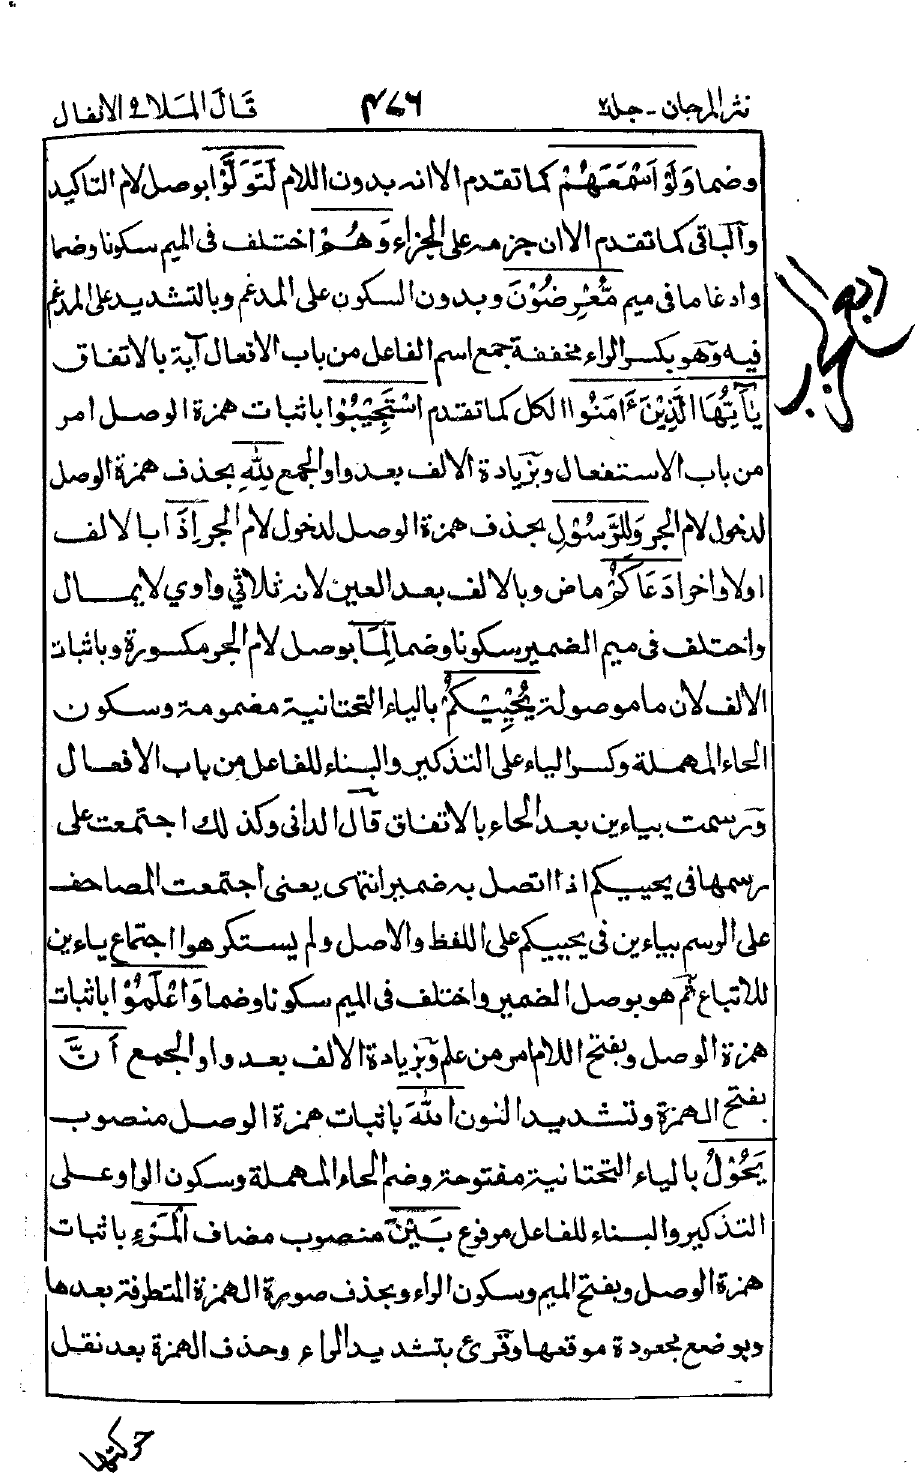 نثر المرجان - جلد ٢ ٤٧٦ قَالَ المَلَا ٩ الانفال
وضما وَلَوْ اَسْمَعَهُمْ كما تقدم الا انه بدون اللام لَتَوَلَّوْا بوصل لام التاكيد
والباقى كما تقدم الا ان جزمه على الجزاء وَهُمْ اختلف فى الميم سكونا وضما
وادغاما فى ميم مُّعْرِضُوْنَ وبدون السكون على المدغم وبالتشديد على المدغم
فيه وهو بكسر الراء مخففة جمع اسم الفاعل من باب الافعال آية بالاتفاق
يٰٓاَيُّهَا الَّذِيْنَ ءَامَنُوا الكل كما تقدم اسْتَجِيْبُوْا باثبات همزة الوصل امر
من باب الاستفعال وبزيادة الالف بعد واو الجمع لِلّٰهِ بحذف همزة الوصل
لدخول لام الجر وَلِلرَّسُوْلِ بحذف همزة الوصل لدخول لام الجر اِذَا بالالف
اولا واخرا دَعَاكُمْ ماض وبالالف بعد العين لانه ثلاثي واوي لا يمال
واختلف فى ميم الضمير سكونا وضما لِمَا بوصل لام الجر مكسورة وباثبات
الالف لان ما موصولة يُحْيِيْكُمْ بالياء التحتانية مضمومة وسكون
الحاء المهملة وكسر الياء على التذكير والبناء للفاعل من باب الافعال
ورسمت بياءين بعد الحاء بالاتفاق قال الدانى وكذلك اجتمعت على
رسمها فى يحييكم اذا اتصل به ضمير انتهى يعنى اجتمعت المصاحف
على الرسم بياءين فى يحييكم على اللفظ والاصل ولم يستكرهوا اجتماع ياءين
للاتباع ثم هو بوصل الضمير واختلف فى الميم سكونا وضما وَاعْلَمُوْا باثبات
همزة الوصل وبفتح اللام امر من علم وبزيادة الالف بعد واو الجمع اَنَّ
بفتح الهمزة وتشديد النون اللّٰهَ باثبات همزة الوصل منصوب
يَحُوْلُ بالياء التحتانية مفتوحة وضم الحاء المهملة وسكون الواو على
التذكير والبناء للفاعل مرفوع بَيْنَ منصوب مضاف الْمَرْءِ باثبات
همزة الوصل وبفتح الميم وسكون الراء وبحذف صورة الهمزة المتطرفة بعدها
وبوضع جعودة موقعها وقرئ بتشديد الراء وحذف الهمزة بعد نقل
حركتها